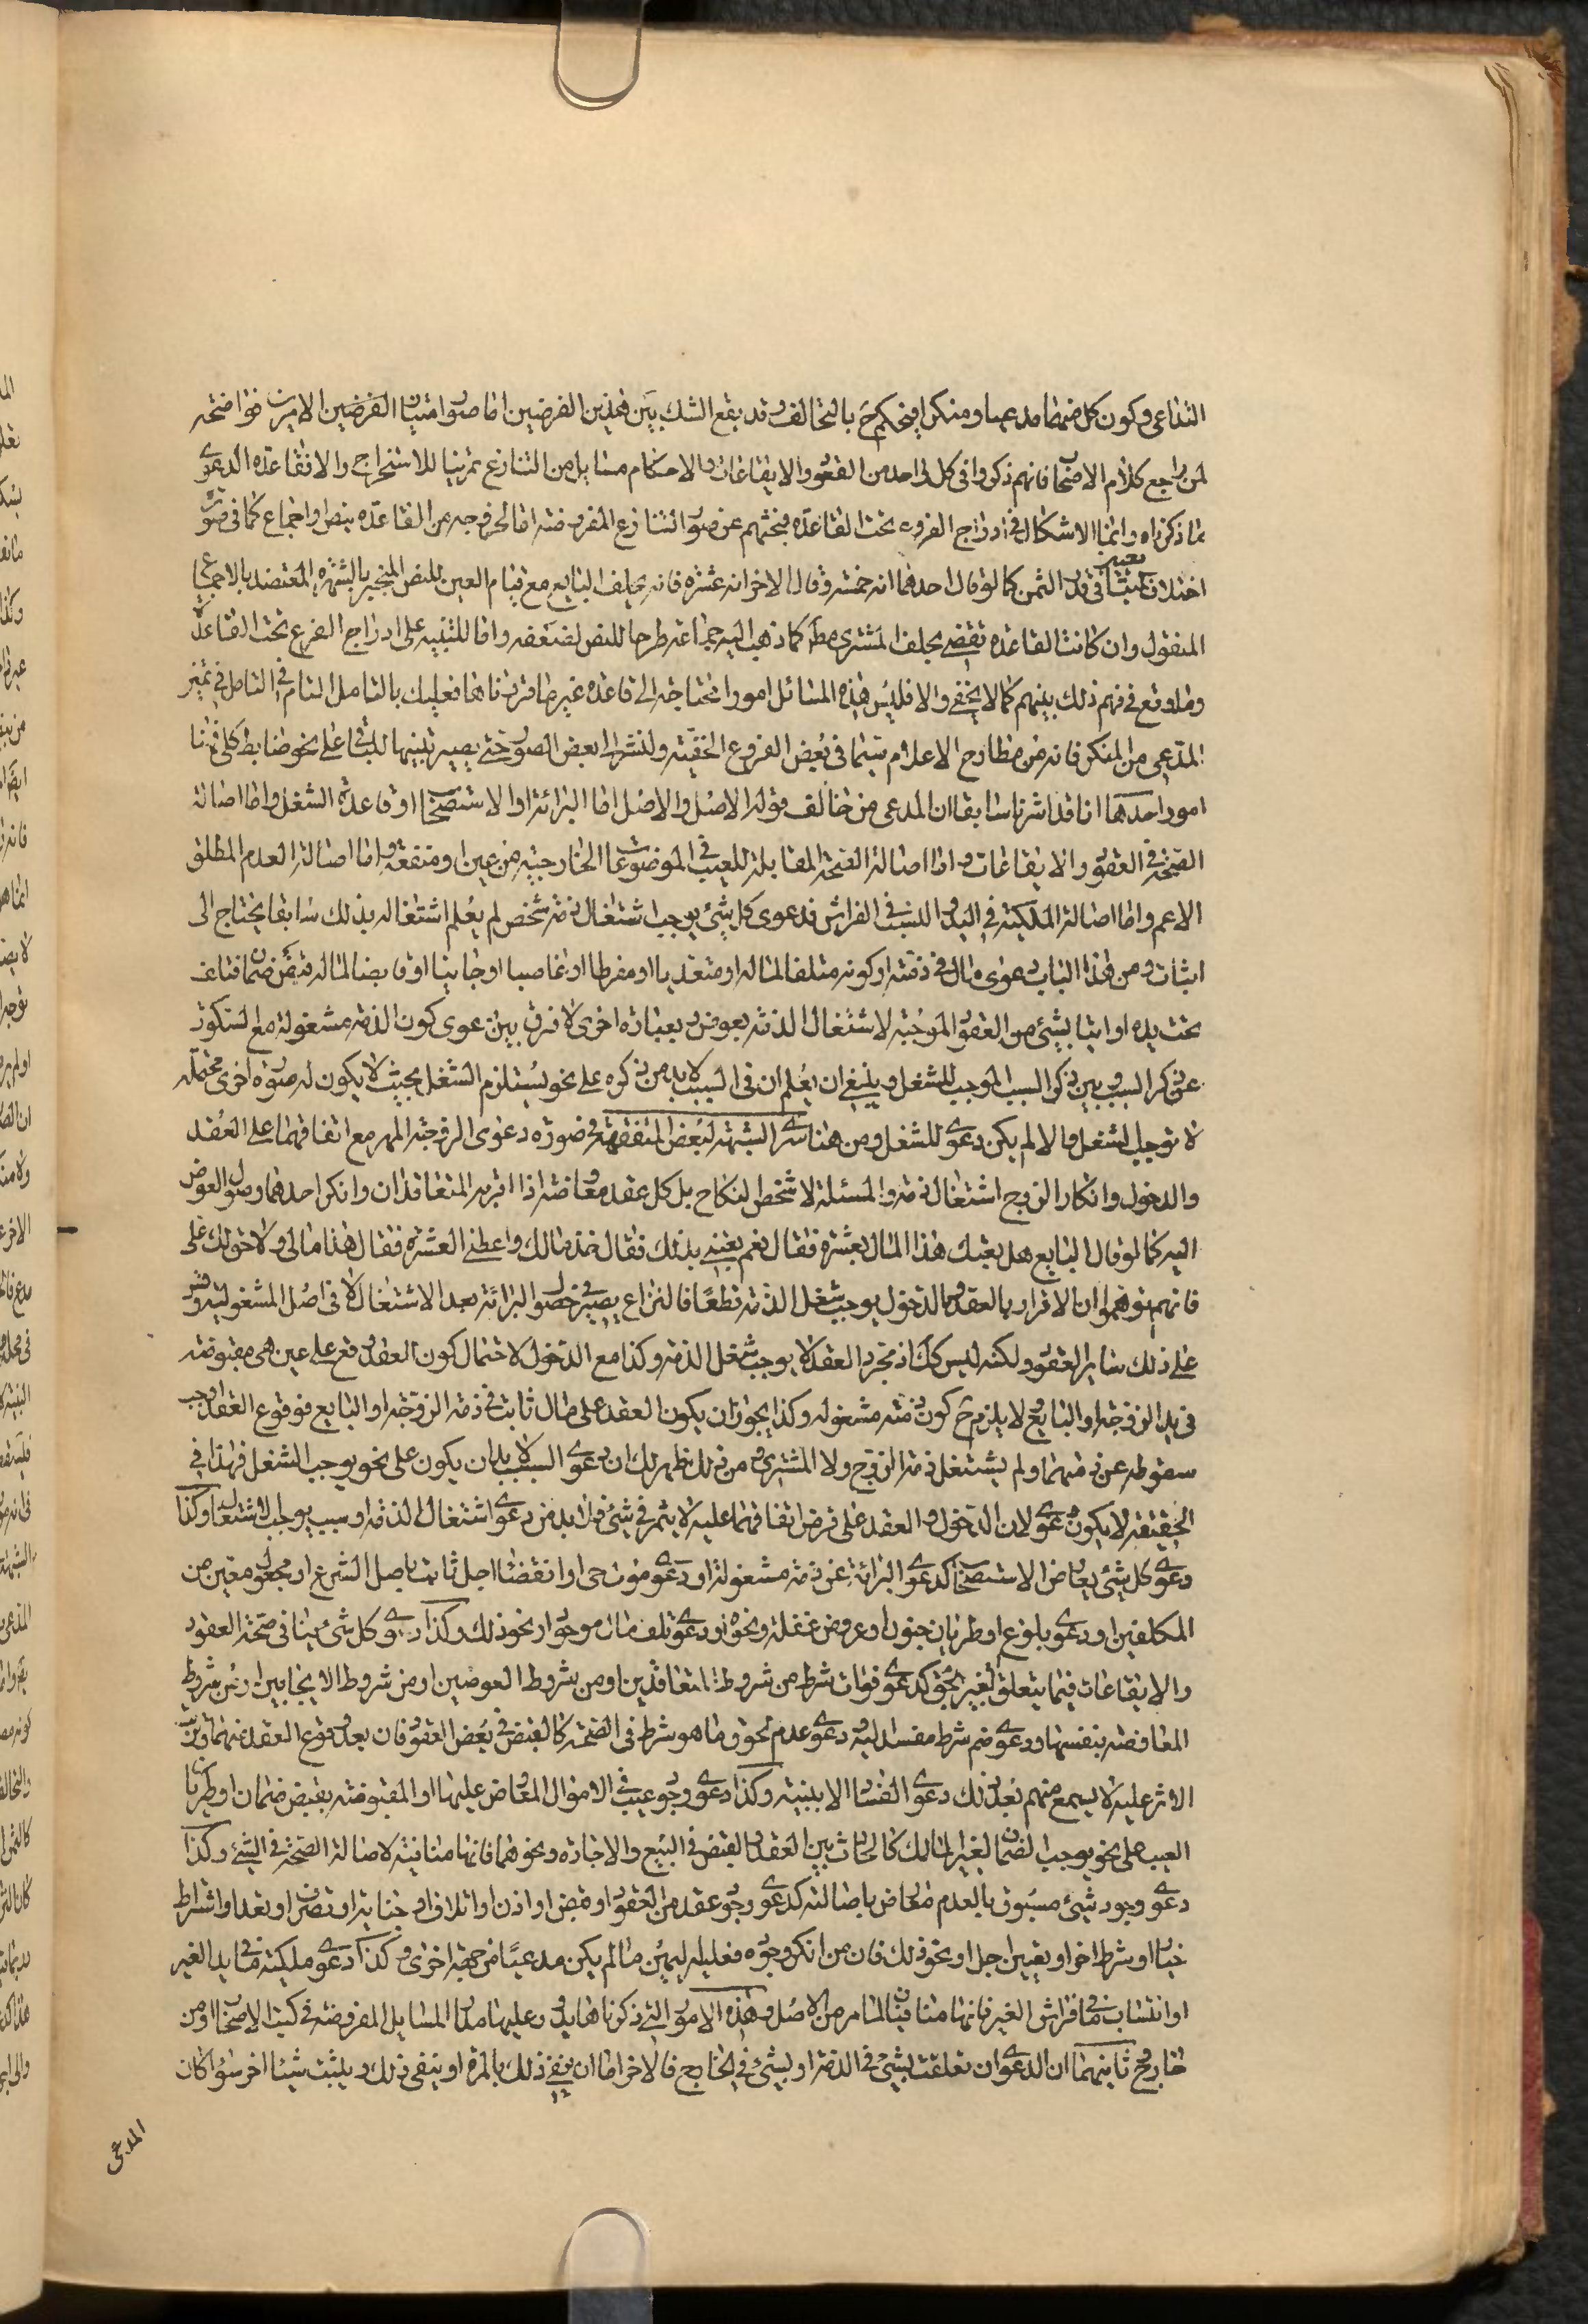 التداعى وكون كل منهما مدعيا ومنكرا فيحكم ح بالتحالف وقد يقع الشك بين هذين الفرضين اما صور امتياز الفرضين الامر فواضحة
لمن راجع كلام الاصحاب فانهم ذكروا فى كل واحد من العقود والايقاعات والاحكام مسايل من التنازع تمرينا للاستخراج والا فقاعدة الدعوى
ما ذكرناه وانما الاشكال فى ادراج الفروع تحت القاعدة فبحثهم عن صور التنازع المفروضة اما لخروجه من القاعدة بنص او اجماع كما فى صورة
اختلاف المتبايعين فى قدر الثمن كما لو قال احدهما انه خمسة وقال الاخر انه عشرة فانه يحلف البايع مع قيام العين للنص المنجبر بالشهرة المعتضد بالاجماع
المنقول وان كانت القاعدة تقتضى بحلف المشترى مط كما ذهب اليه جماعة طرحا للنص لضعفه واما للتنبيه على ادراج الفرع تحت القاعدة
وما وقع فى فهم ذلك بينهم كما لا يخفى والا فليس هذه المسائل امورا محتاجة الى قاعدة غير ما قررناها فعليك بالتامل التام فى التامل فى تميز
المدعى من المنكر فانه من مطارح الاعلام سيما فى بعض الفروع الخفية ولنشر الى بعض الصور حتى يصير تنبيها للباقى على نحو ضابط كلى فهنا
امور احدها انا قد اشرنا سابقا ان المدعى من خالف قوله الاصل والاصل اما البرائة او الاستصحاب او قاعدة الشغل واما اصالة
الصحة فى العقود والايقاعات واما اصالة الصحة المقابلة للعيب فى الموضوعات الخارجية من عين او منفعة واما اصالة العدم المطلق
الاعم واما اصالة الملكية فى اليد والنسب فى الفراش فدعوى كل شئ يوجب اشتغال ذمة شخص لم يعلم اشتغاله بذلك سابقا يحتاج الى
اثبات ومن هذا الباب دعوى مال فى ذمته او كونه متلفا لماله او متعديا او مفرطا او غاصبا او جانيا او قابضا لماله قبض ضمان فتلف
تحت يده او اتيا بشئ من العقود الموجبة لاشتغال الذمة بعوض وبعبارة اخرى لا فرق بين دعوى كون الذمة مشغولة مع السكوت
عن ذكر السبب وبين ذكر السبب الموجب للشغل وينبغى ان يعلم ان فى السبب لابد من ذكره على نحو يستلزم الشغل بحيث لا يكون له صورة اخرى محتملة
لا توجب الشغل والا لم يكن دعوى للشغل ومن هنا سرى الشبهة لبعض المتفقهة فى صورة دعوى الزوجة المهر مع اتفاقهما على العقد
والدخول وانكار الزوج اشتغال ذمته والمسئلة لا تخص النكاح بل كل عقد معاوضة اذا اقر به المتعاقدان وانكر احدهما وصول العوض
اليه كما لو قال البايع هل بعتك هذا المال بعشرة فقال نعم بعتنى بذلك فقال خذ مالك واعطنى العشرة فقال هذا مالى ولا حق لك على
فانهم توهموا ان الاقرار بالعقد والدخول يوجب شغل الذمة قطعا فالنزاع يصير فى حصول البرائة بعد الاشتغال لا فى اصل المشغولية وقس
على ذلك ساير العقود ولكنه ليس كك اذ مجرد العقد لا يوجب شغل الذمة وكذا مع الدخول لاحتمال كون العقد وقع على عين هى مقبوضة
فى يد الزوجة او البايع لا يلزم ح كون ذمته مشغولة وكذا يجوز ان يكون العقد على مال ثابت فى ذمة الزوجة او البايع فوقوع العقد اوجب
سقوطه عن ذمتهما ولم يشتغل ذمة الزوج ولا المشترى ومن ذلك ظهر لك ان دعوى السبب لابد ان يكون على نحو يوجب الشغل فهذا فى
الحقيقة لا يكون دعوى لان الدخول والعقد على فرض اتفاقهما عليه لا يثمر فى شئ فلابد من دعوى اشتغال الذمة وسبب يوجب الاشتغال وكذا
دعوى كل شئ يعارض الاستصحاب كدعوى البرائة عن ذمة مشغولة او دعوى موت حى او انقضاء اجل ثابت باصل الشرع او مجعول معين من
المكلفين او دعوى بلوغ او طريان جنون او عروض غفلة ونحوه او دعوى تلف مال موجود او نحو ذلك وكذا دعوى كل شئ ينافى صحة العقود
والايقاعات فيما يتعلق لغير بحق كدعوى فوات شرط من شروط المتعاقدين او من شروط العوضين او من شروط الايجابين او من شروط
المعاوضة بنفسها ودعوى ضم شرط مفسد اليه ودعوى عدم لحوق ما هو شرط فى الصحة كالقبض فى بعض العقود فان بعد وقوع العقد عنهما وترتب
الاثر عليه لا يسمع منهم بعد ذلك دعوى الفساد الا ببينة وكذا دعوى وجود عيب فى الاموال المعاوض عليها او المقبوضة بقبض ضمان او طريان
العيب على نحو يوجب الضمان لغير المالك كالحادث بين العقد والقبض فى البيع والاجارة ونحوهما فانها منافية لاصالة الصحة فى الشئ وكذا
دعوى وجود شئ مسبوق بالعدم معارض باصالته كدعوى وجود عقد من العقود او قبض او اذن او اتلاف او جناية او تصرف او تعد او اشتراط
خيار او شرط اخر او تعيين اجل او نحو ذلك فان من انكر وجوده فعليه اليمين ما لم يكن مدعيا من جهة اخرى وكذا دعوى ملكية ما فى يد الغير
او انتساب ما فى فراش الغير فانها منافيان لما مر من الاصل وهذه الامور التى ذكرناها يدور عليها مدار المسايل المفروضة فى كتب الاصحاب او من
خارج ثانيهما ان الدعوى ان تعلقت بشئ فى الذمة او بشئ فى الخارج فالاخر اما ان ينفى ذلك بالمرة او ينفى ذلك ويثبت شيئا اخر سواء كان
المدعى